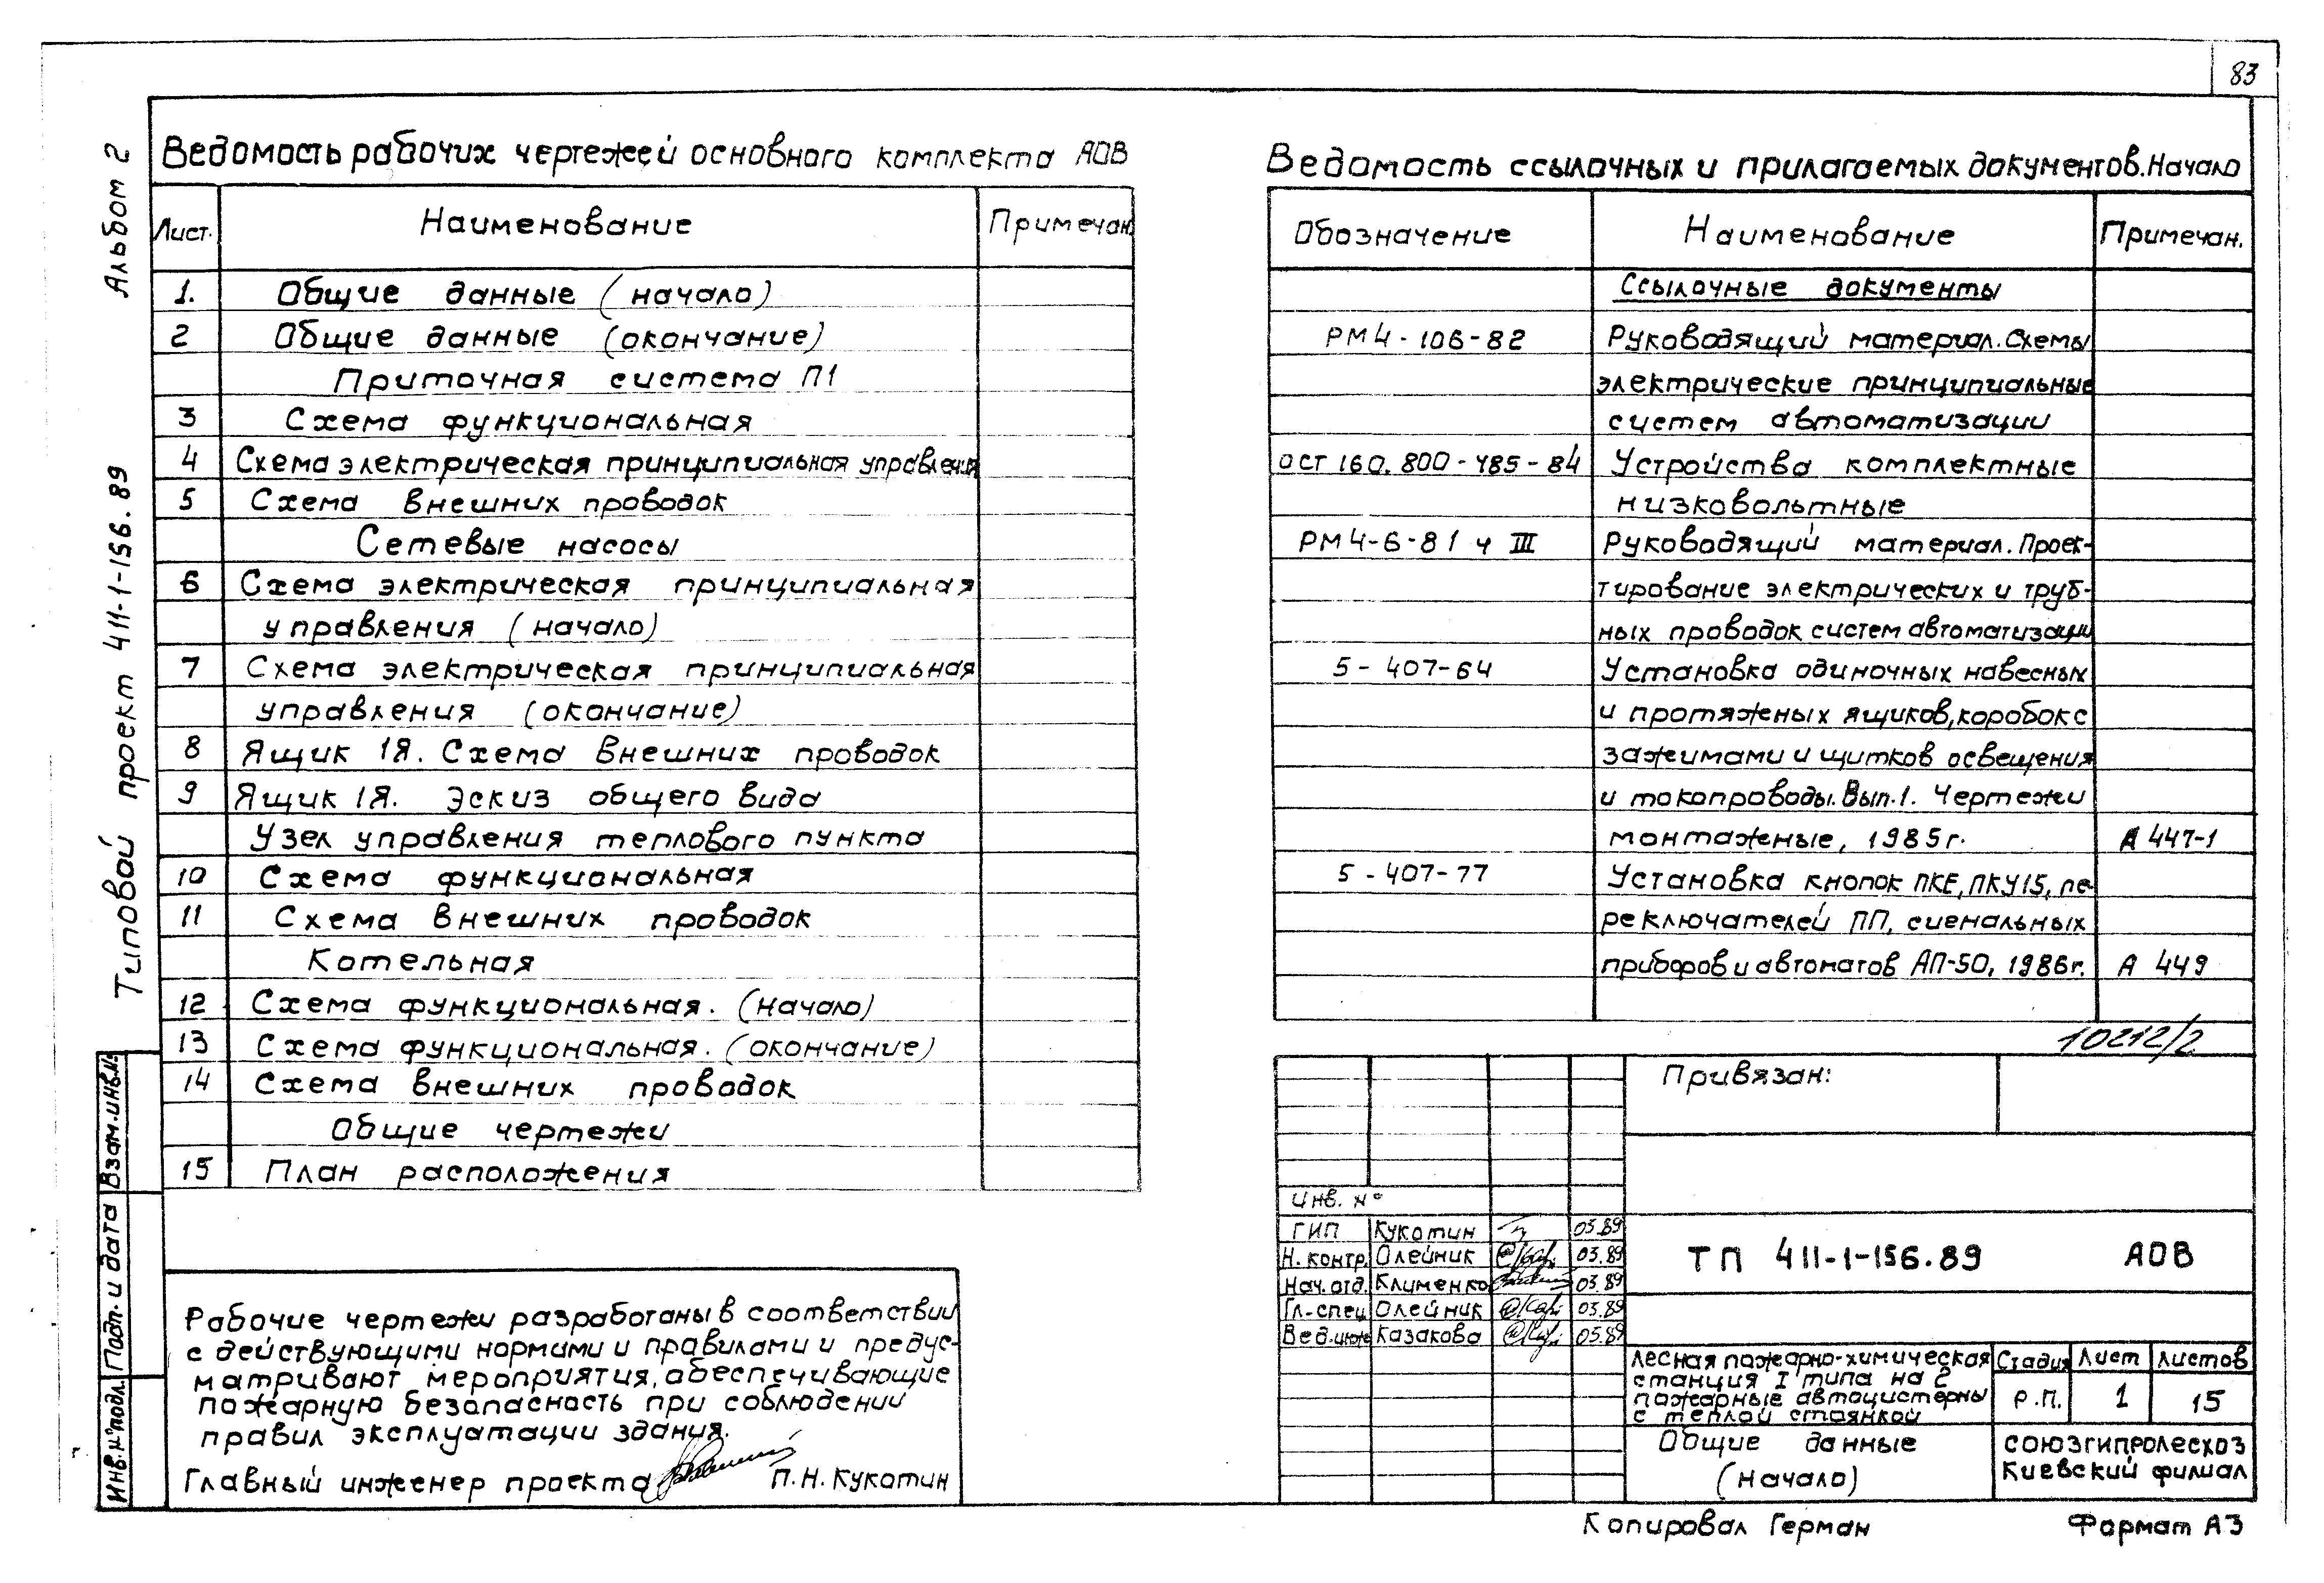 83
Альбом 2
Типовой проект 411-1-156.89
Ведомость рабочих чертежей основного комплекта АОВ
Лист. Наименование Примечан.
1. Общие данные (начало)
2 Общие данные (окончание)
Приточная система П1
3 Схема функциональная
4 Схема электрическая принципиальная управления
5 Схема внешних проводок
Сетевые насосы
6 Схема электрическая принципиальная
управления (начало)
7 Схема электрическая принципиальная
управления (окончание)
8 Ящик 1Я. Схема внешних проводок
9 Ящик 1Я. Эскиз общего вида
Узел управления теплового пункта
10 Схема функциональная
11 Схема внешних проводок
Котельная
12 Схема функциональная. (начало)
13 Схема функциональная. (окончание)
14 Схема внешних проводок
Общие чертежи
15 План расположения
Рабочие чертежи разработаны в соответствии
с действующими нормами и правилами и предус-
матривают мероприятия, обеспечивающие
пожарную безопасность при соблюдении
правил эксплуатации здания.
Главный инженер проекта П.Н. Кукотин
Взам.инв.№
Подп. и дата
Инв.№подл.
Ведомость ссылочных и прилагаемых документов. Начало
Обозначение Наименование Примечан.
Ссылочные документы
РМ4-106-82 Руководящий материал. Схемы
электрические принципиальные
систем автоматизации
ОСТ 160.800-485-84 Устройства комплектные
низковольтные
РМ4-6-81 ч III Руководящий материал. Проек-
тирование электрических и труб-
ных проводок систем автоматизации
5-407-64 Установка одиночных навесных
и протяжных ящиков, коробок с
зажимами и щитков освещения
и токопроводы. Вып.1. Чертежи
монтажные, 1985г. А 447-1
5-407-77 Установка кнопок ПКЕ, ПКУ15, пе-
реключателей ПП, сигнальных
приборов и автоматов АП-50, 1986г. А 449
10212/2
Привязан:
Инв. №
ГИП Кукотин 03.89
Н. контр. Олейник 03.89
Нач. отд. Клименко 03.89
Гл-спец Олейник 03.89
Вед.инж Казакова 03.89
ТП 411-1-156.89 АОВ
Лесная пожарно-химическая
станция I типа на 2
пожарные автоцистерны
с теплой стоянкой
Стадия Лист Листов
Р.П. 1 15
Общие данные
(начало)
СОЮЗГИПРОЛЕСХОЗ
Киевский филиал
Копировал Герман Формат А3